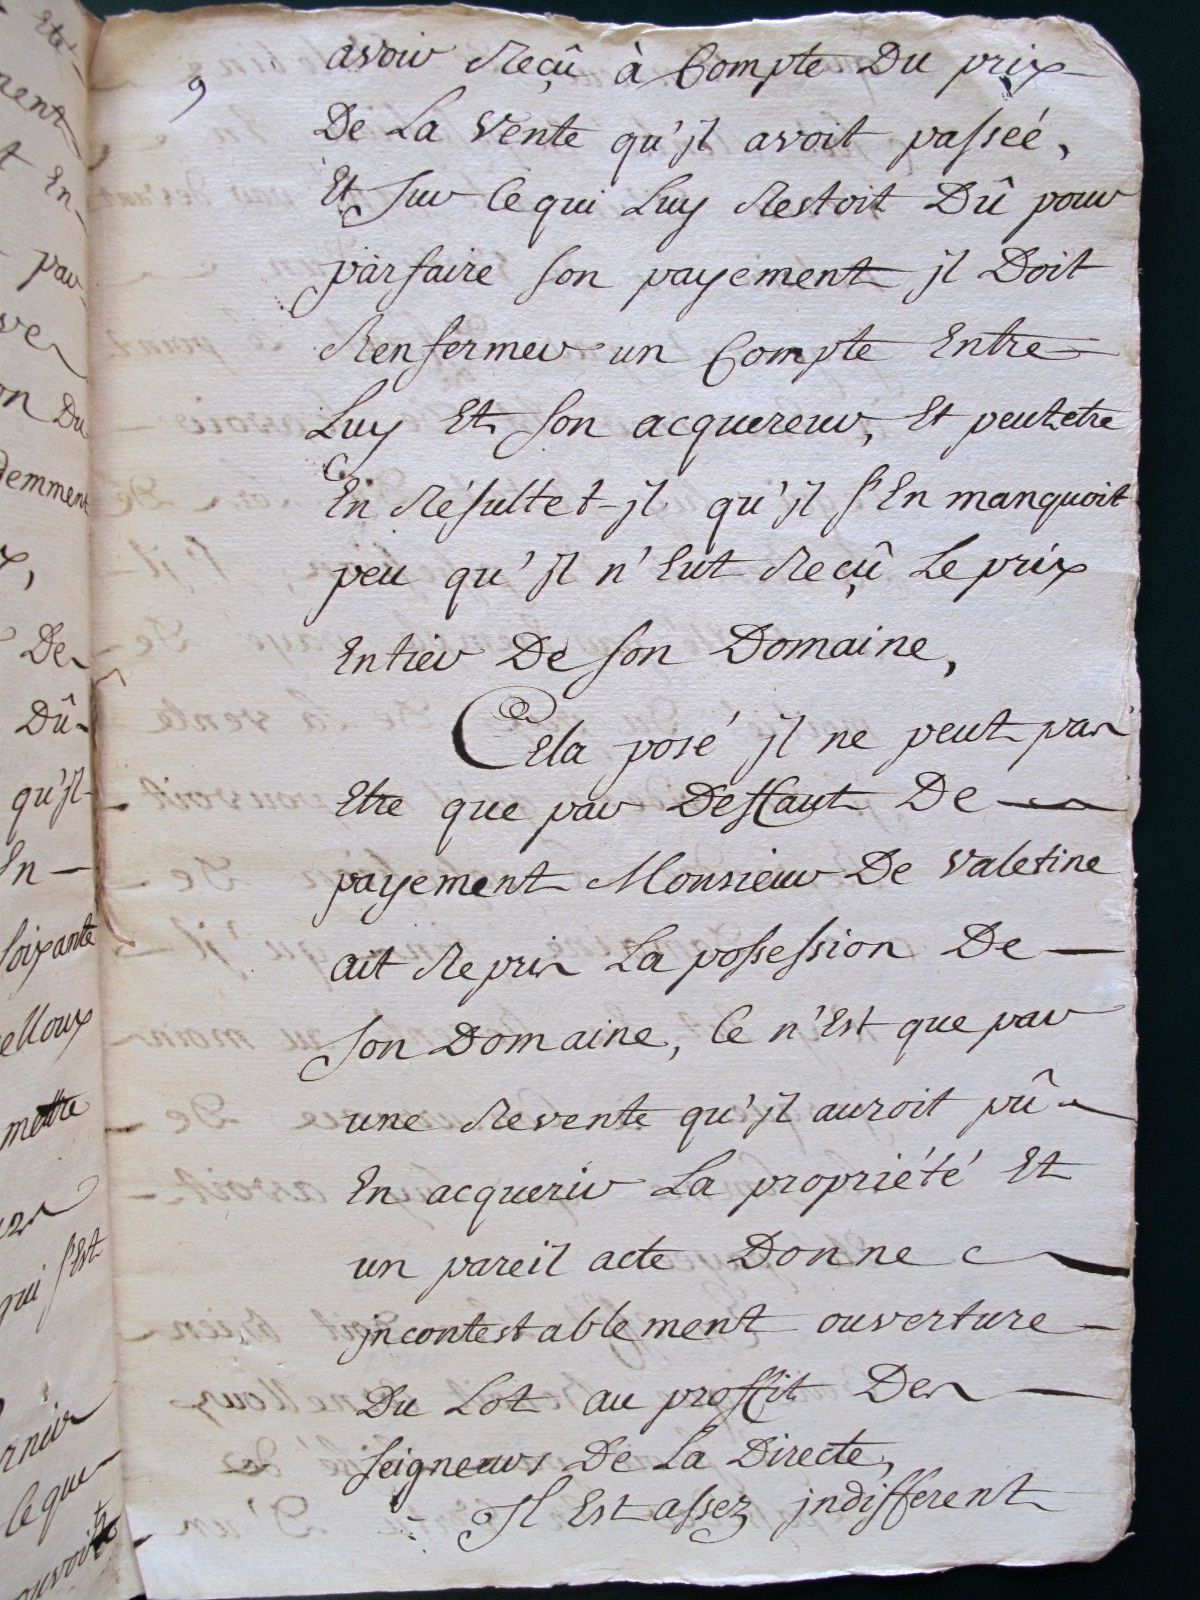 9
avoir Reçû à Compte Du prix
De La Vente qu'jl avoit passeé,
Et Sur Ce qui Luy Restoit Dû pour
parfaire son payement jl Doit
Renfermer un Compte Entre
Luy Et son acquereur, Et peutetre
En Résultet-jl qu'jl s'En manquoit
peu qu'jl n'Eut Reçû Le prix
Entier De son Domaine,
Cela posé jl ne peut pas
Etre que par Deffaut De
payement Monsieur De Valetine
ait Repris La possession De
Son Domaine, Ce n'Est que par
une Revente qu'jl auroit pû
En acquerir La propriété Et
un pareil acte Donne
jncontestablement ouverture
Du Lot au proffit Des
seigneurs De La Directe,
Il Est assez jndifferent
rent
t En
par
on Du
demment
De
Dû
qu'jl
En
soixante
elloux
mettre
qui s'Est
Ce que